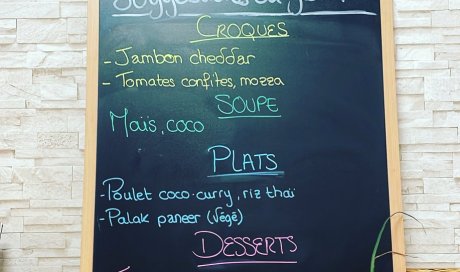 Suggestions du jour
CROQUES
- Jambon cheddar
- Tomates confites, mozza
SOUPE
Maïs, coco
PLATS
- Poulet coco-curry, riz thaï
- Palak paneer (végé)
DESSERTS